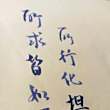 所行化坦
所求皆如